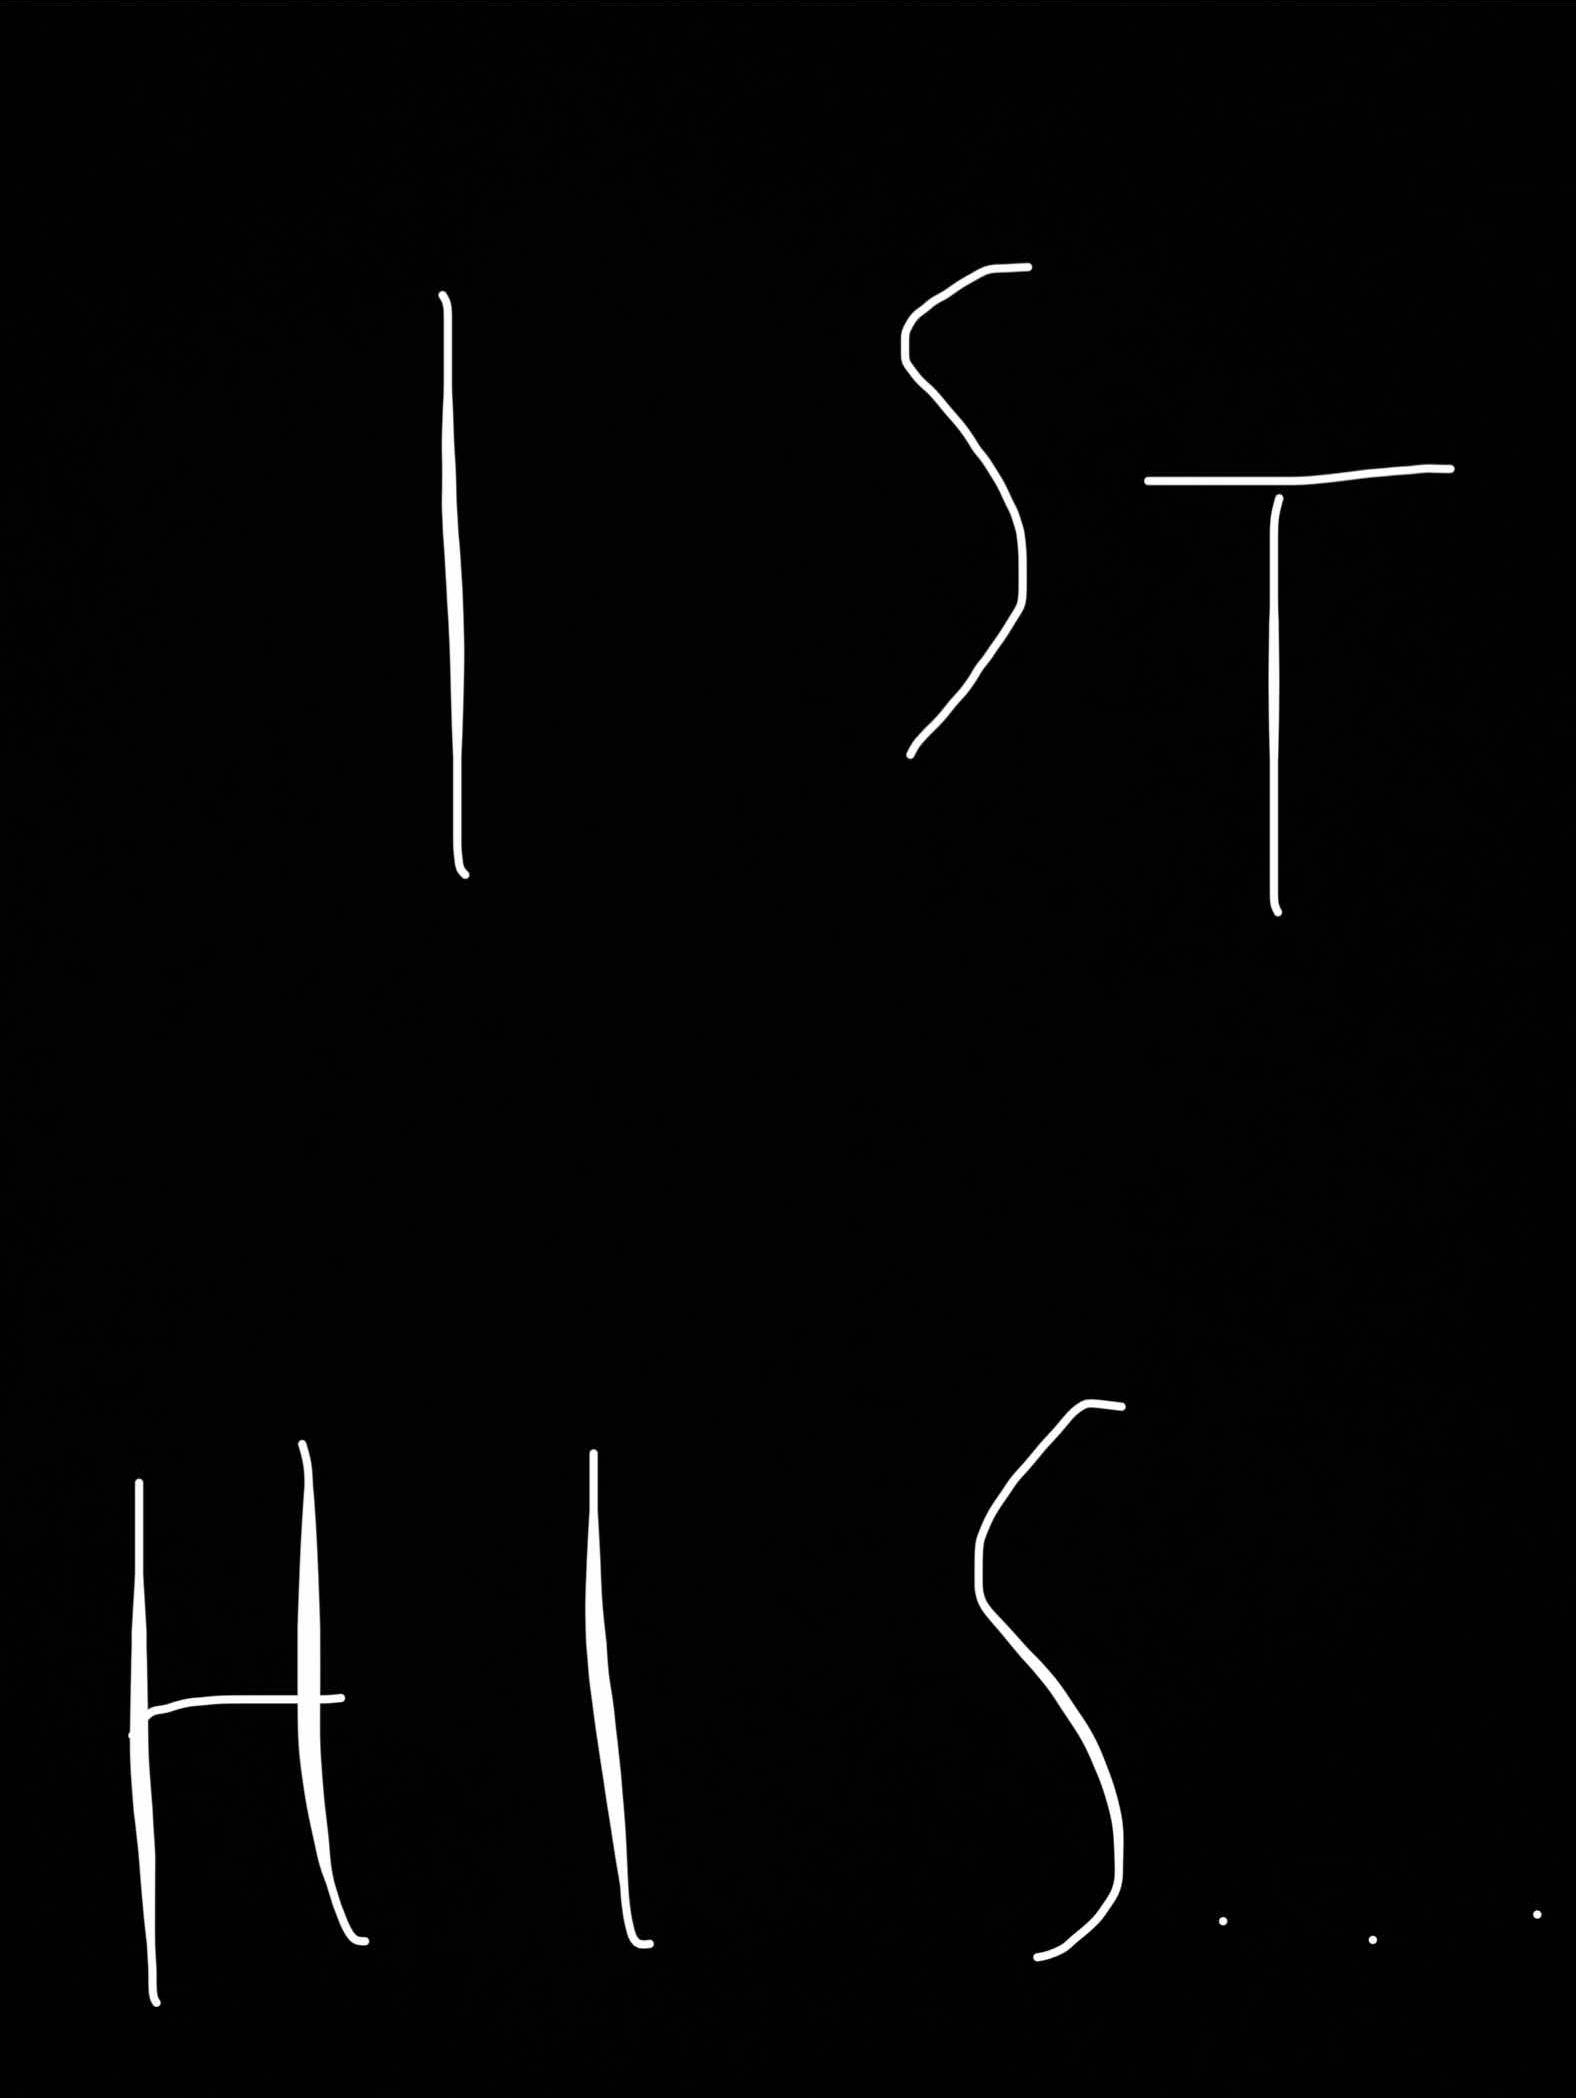 I ST
HIS...